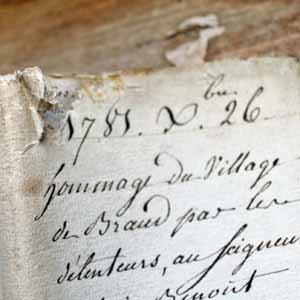 1781. X.bre 26
hommage du Village
de Braud par les
détenteurs, au Seigneur
Benoist